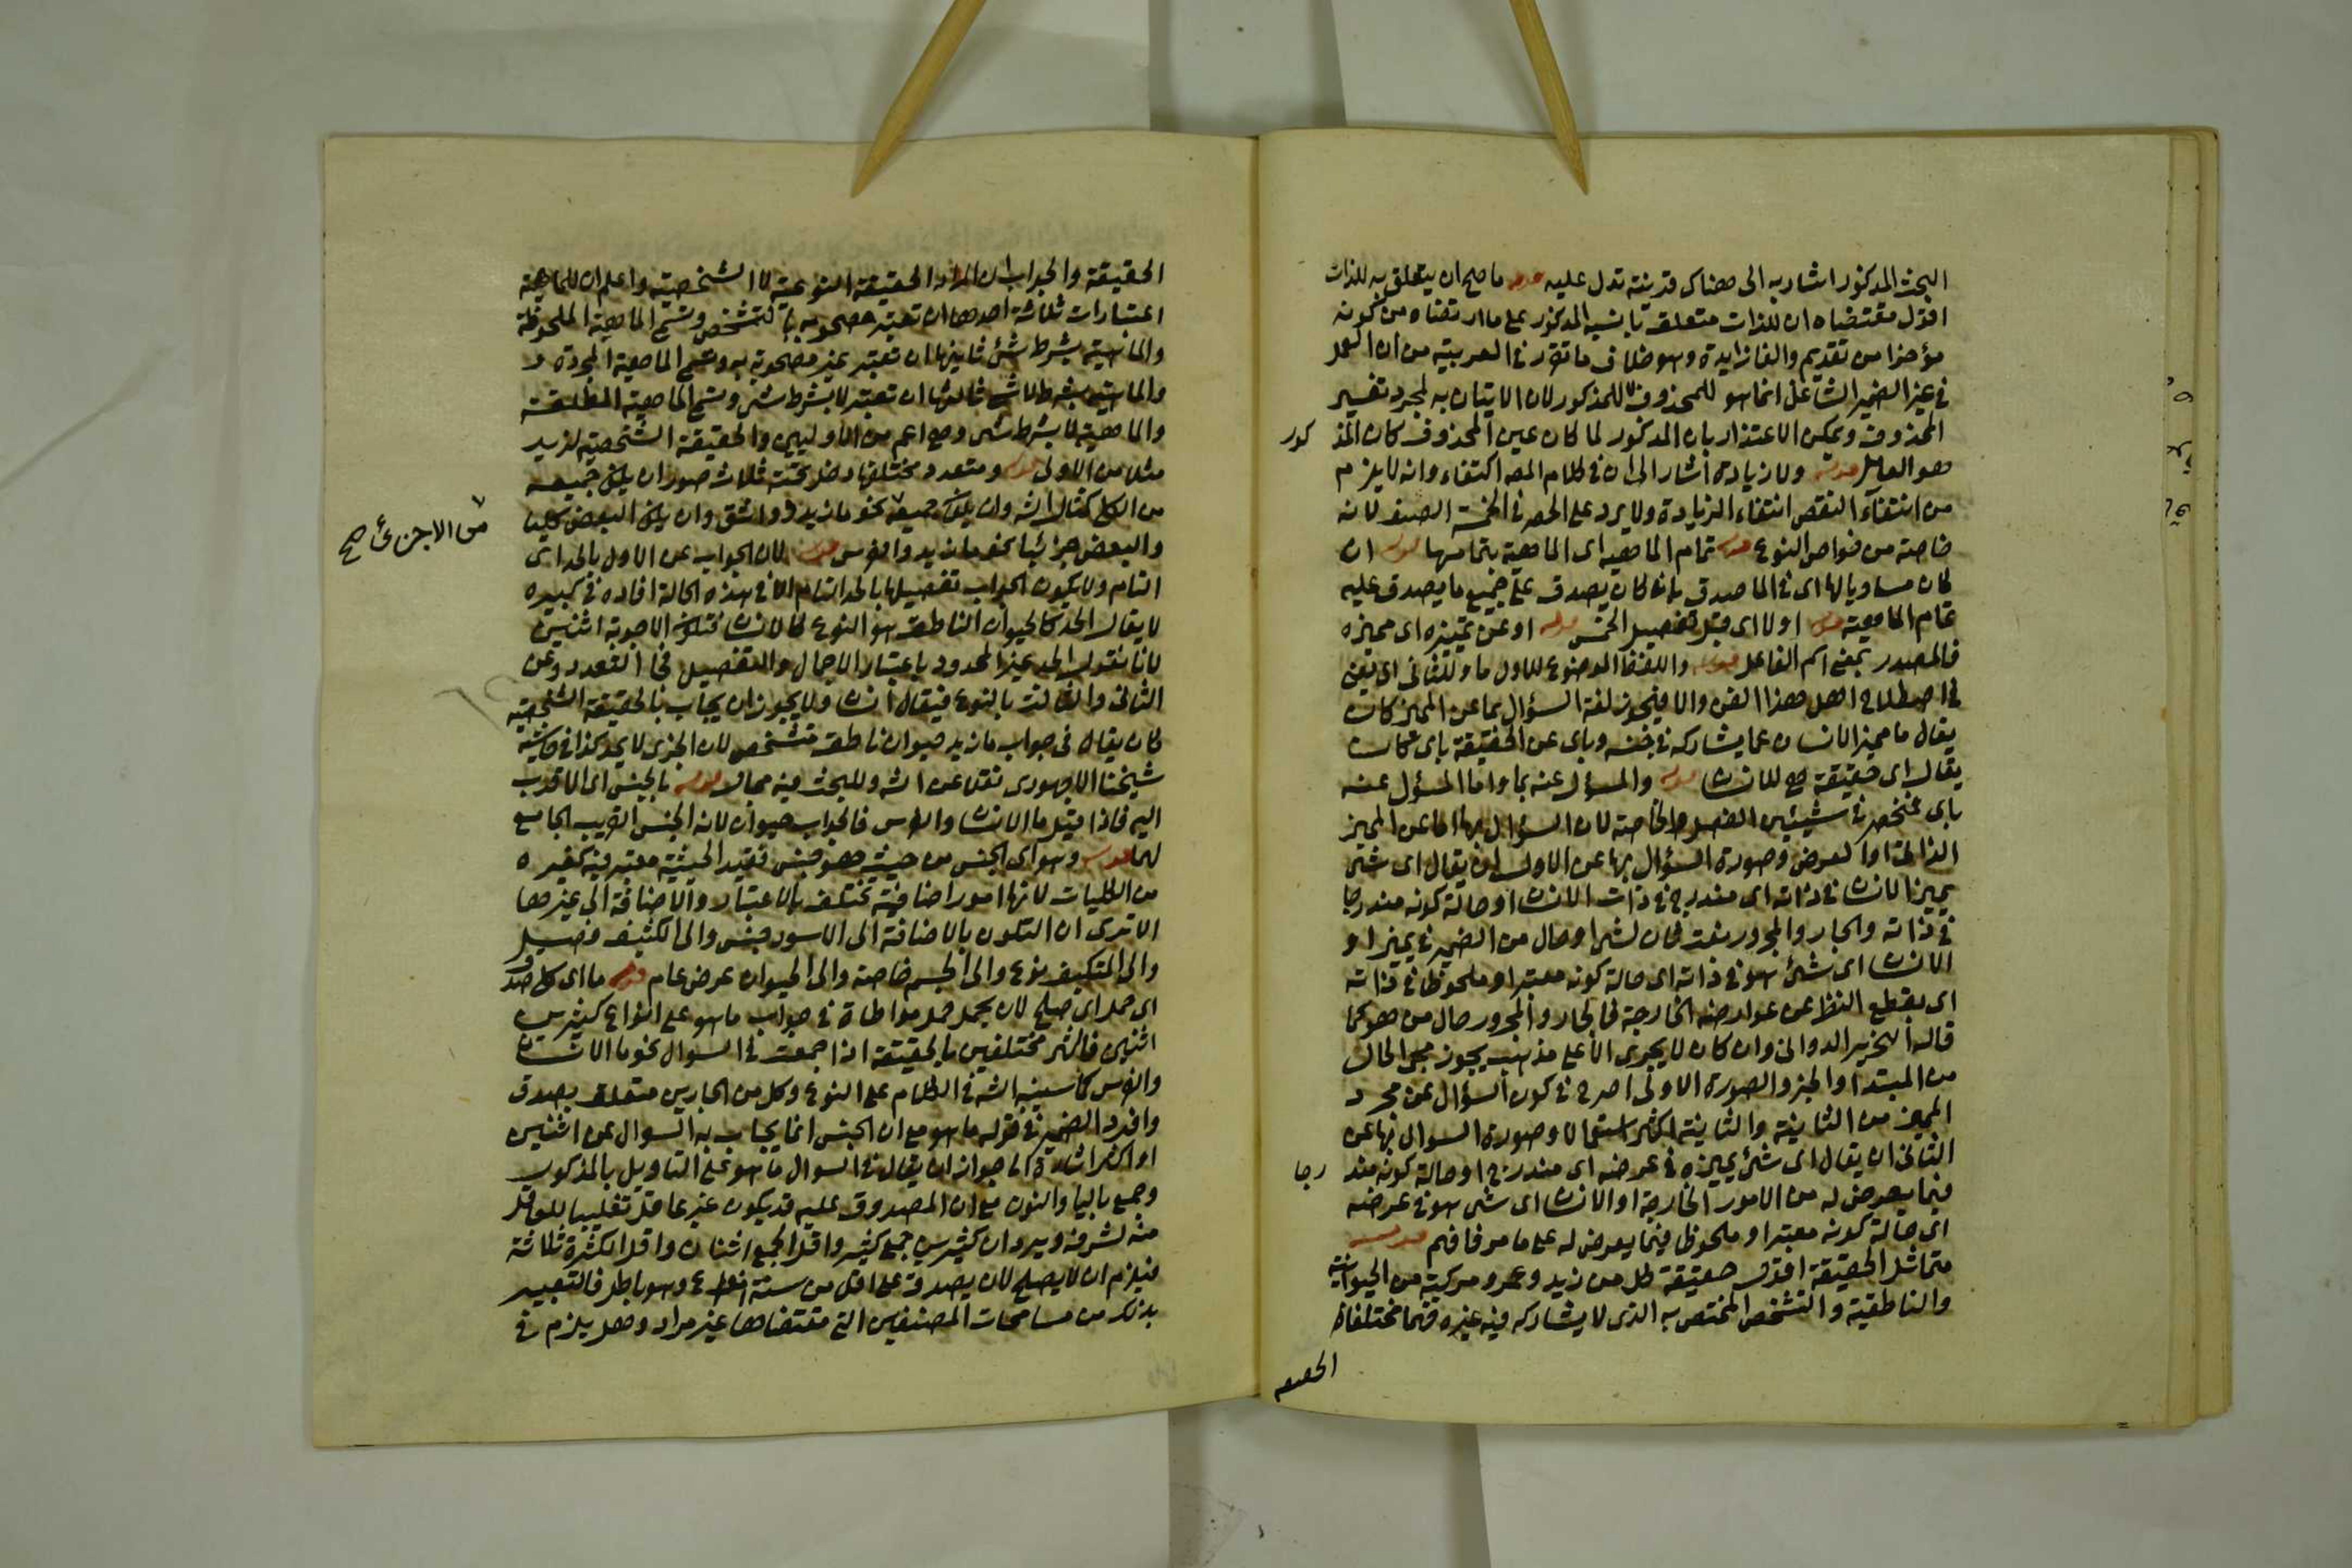 البحث المذكور اشار به الى هناك قرينة تدل عليه قوله ما صح ان يتعلق به للذات
اقول مقتضاه ان للذات متعلقة بانسبه المذكور على ما ارتضاه من كونه
مؤخرا من تقديم والفا زايدة وهو خلاف ما تقرر في العربية من ان العمل
في غير الضمير الشاغل انما هو للمحذوف لا للمذكور لان الاتيان به لمجرد تفسير
المحذوف ويمكن الاعتذار بان المذكور لما كان عين المحذوف كان المذ كور
هو العامل قوله ولا زيادة اشار الى ان في كلام المص اكتفاء وانه لا يلزم
من انتفاء النقص انتفاء الزيادة ولا يرد على الحصر في الخمسة الصنف لانه
خاصة من خواص النوع قوله تمام الماهية اى الماهية بتمامها قوله ان
كان مساويا لها اى في الماصدق بان كان يصدق على جميع ما يصدق عليه
تمام الماهية قوله اولا اى قبل تفصيل الخمس قوله او عن تمييزه اى مميزه
فالمصدر بمعنى اسم الفاعل قوله واللفظ الموضوع للاول ما وللثانى اى يعنى
في اصطلاح اهل هذا الفن والا فيجوز لغة السؤال بما عن المميز كان
يقال ما مميز الانسان عما يشاركه في جنسه وباى عن الحقيقة باى كان
يقال اى حقيقة هي للانسان قوله والمسؤل عنه بما واما المسؤل عنه
باى فمنحصر في شيئين الفصل والخاصة لان السؤال بها اما عن المميز
الذاتى او العرضى وصورة السؤال بها عن الاول ان يقال اى شى
يميز الانسان في ذاته اى مندرج في ذات الانسان او حالة كونه مندرجا
في ذاته والجار والمجرور نعت ثان لشى او حال من الضمير في يميز او
الانسان اى شئ هو في ذاته اى حالة كونه معتبرا وملحوظا في ذاته
اى بقطع النظر عن عوارضه الخارجة فالجار والمجرور حال من هو كما
قاله النحرير الدوانى وان كان لا يجرى الا على مذهب يجوز مجئ الحال
من المبتدا والخبر والصورة الاولى اصرح في كون السؤال عن مجرد
المميز من الثانية والثانية اكثر استعمالا وصورة السوال بها عن
الثانى ان يقال اى شئ يميزه في عرضه اى مندرج او حالة كونه مند رجا
فيما يعرض له من الامور الخارجية او الانسان اى شى هو في عرضه
اى حالة كونه معتبرا وملحوظا فيما يعرض له على ما مر فافهم قوله
متماثل الحقيقة اقول حقيقة كل من زيد وعمرو مركبة من الحيوانية
والناطقية والتشخص المختص به الذى لا يشاركه فيه غيره فهما مختلفا
الحقيقه
الحقيقة والجواب ان المراد الحقيقة النوعية لا الشخصية واعلم ان للماهية
اعتبارات ثلاثة احدها ان تعتبر مصحوبة بالتشخص وتسمى الماهية الملحوظة
والماهية بشرط شئ ثانيها ان تعتبر غير مصحوبة به وتسمى الماهية المجردة و
والماهية بشرط لا شى ثالثها ان تعتبر لا بشرط شى وتسمى الماهية المطلقة
والماهية لا بشرط شى وهي اعم من الاوليين والحقيقة الشخصية لزيد
مثلا من الاولى قوله ومتعدد مختلفها دخل تحته ثلاث صور ان يكون جميعه
من الكلى كمثال الشه وان يكون جميعه نحو ما زيد وواشق وان يكون البعض كليا
من الاجزئ صح
والبعض جزئيا نحو ما زيد والفرس قوله لان الجواب عن الاول بالحد اى
التام ولا يكون الجواب تفصيلها بالحد التام الا في هذه الحالة افاده في كبيره
لا يقال الحد كالحيوان الناطق هو النوع كالانسان فتكون الاجوبة اثنين
لانا نقول الحد غير المحدود باعتبار الاجمال والتفصيل فجاء التعدد وعن
الثانى والثالث بالنوع فيقال انسان ولا يجوز ان يجاب بالحقيقة الشخصية
كان يقال في جواب ما زيد حيوان ناطق متشخص لان الجزى لا يحد كذا في حاشية
شيخنا الاجهورى نقلا عن الشه وللبحث فيه مجال قوله بالجنس اى الاقرب
اليه فاذا قيل ما الانسان والفرس فالجواب حيوان لانه الجنس القريب الجامع
لهما قوله وهو اى الجنس من حيث هو جنس فقيد الحيثية معتبر فيه كغيره
من الكليات لانها امور اضافية تختلف بالاعتبار والاضافة الى غيرها
الا ترى ان التلون بالاضافة الى الاسود جنس والى الكثيف فصل
والى المتكيف نوع والى الجسم خاصة والى الحيوان عرض عام قوله ما اى كلى صدق
اى حمل اى صلح لان يحمل حمل مواطاة في جواب ما هو على انواع كثيرين
اثنين فاكثر مختلفين بالحقيقة اذا جمعت في السوال نحو ما الانسان
والفرس كما سيبينه الشه في الكلام على النوع وكل من الجارين متعلق بصدق
وافرد الضمير في قوله ما هو مع ان الجنس انما يجاب به السوال عن اثنين
او اكثر اشارة الى جواز ان يقال في السوال ما هو على التاويل بالمذكور
وجمع باليا والنون مع ان المصدوق عليه قد يكون غير عاقل تغليبا للعاقل
منه لشرفه ويرد ان كثيرين جمع كثير واقل الجمع اثنان واقل الكثرة ثلاثة
فيلزم ان لا يصلح لان يصدق على اقل من ستة انواع وهو باطل فالتعبير
بذلك من مسامحات المصنفين التى مقتضاها غير مراد وهل يلزم في